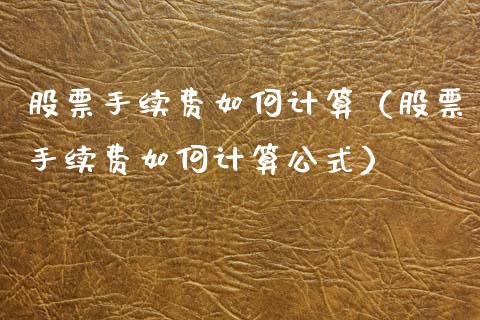 股票手续费如何计算（股票
手续费如何计算公式）